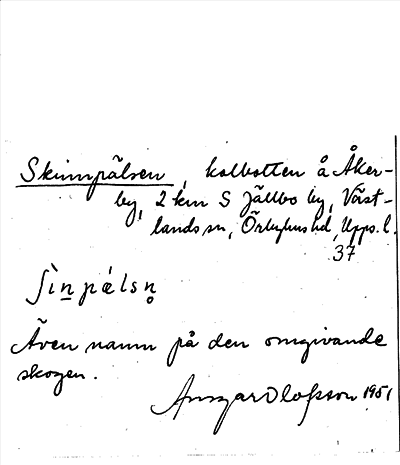 Skinnpälsen, kolbotten å Åker-
by, 2 km S Jällbo by, Väst-
lands sn, Örbyhus hd, Upps. l.
37
ʃìn̲pǽlsn̥
Även namn på den omgivande
skogen.
Ansgar Olofsson 1951